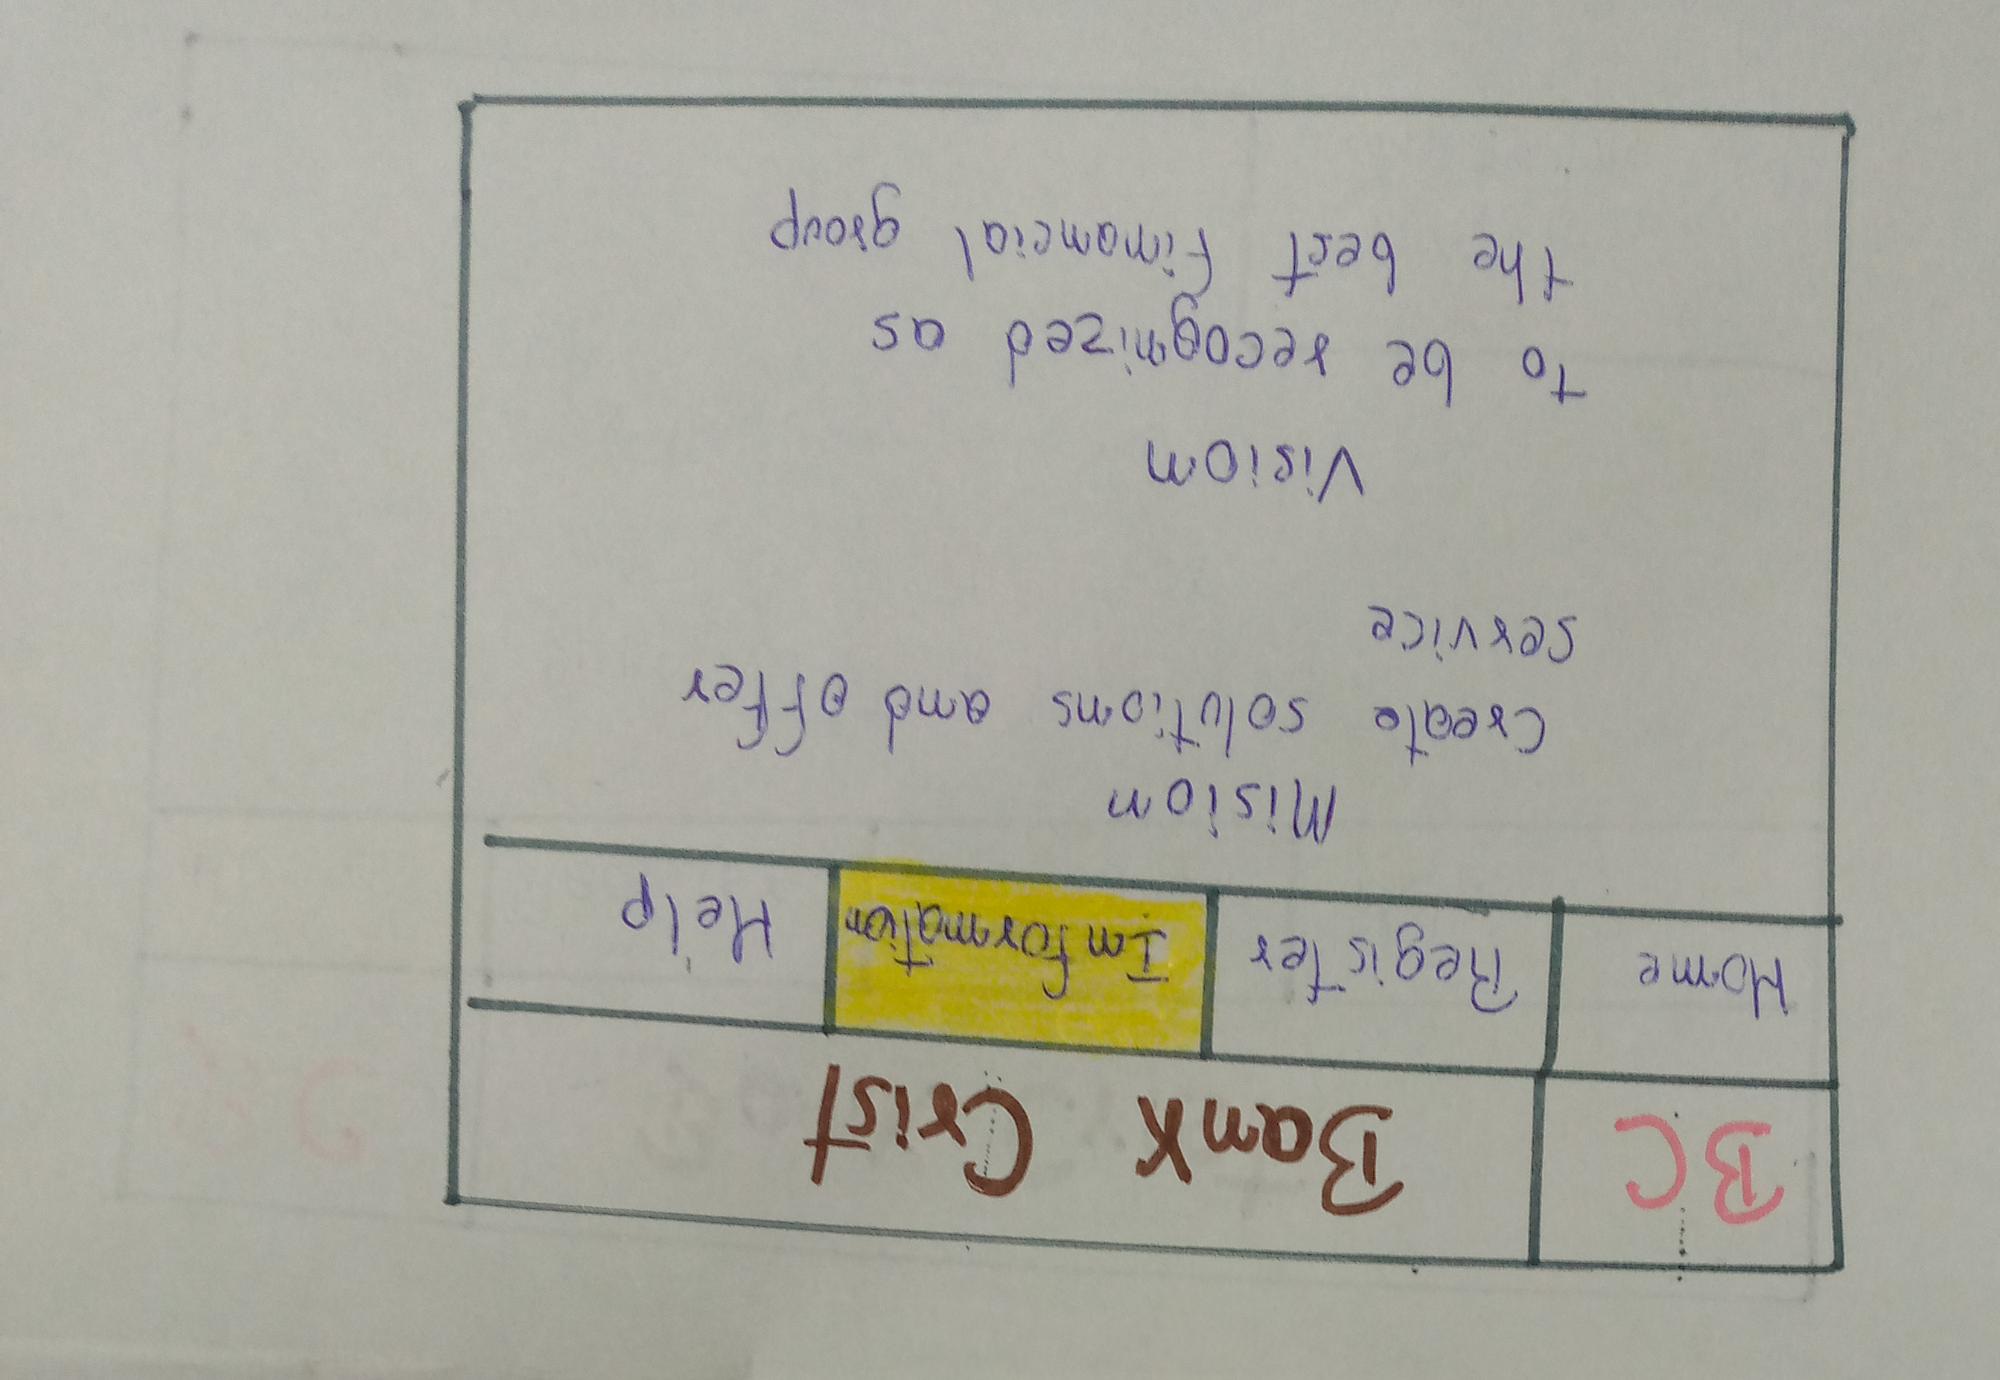 BC
Bank Crist
Home Register Information Help
Mision
Create solutions and offer
service
Vision
To be recognized as
the best financial group